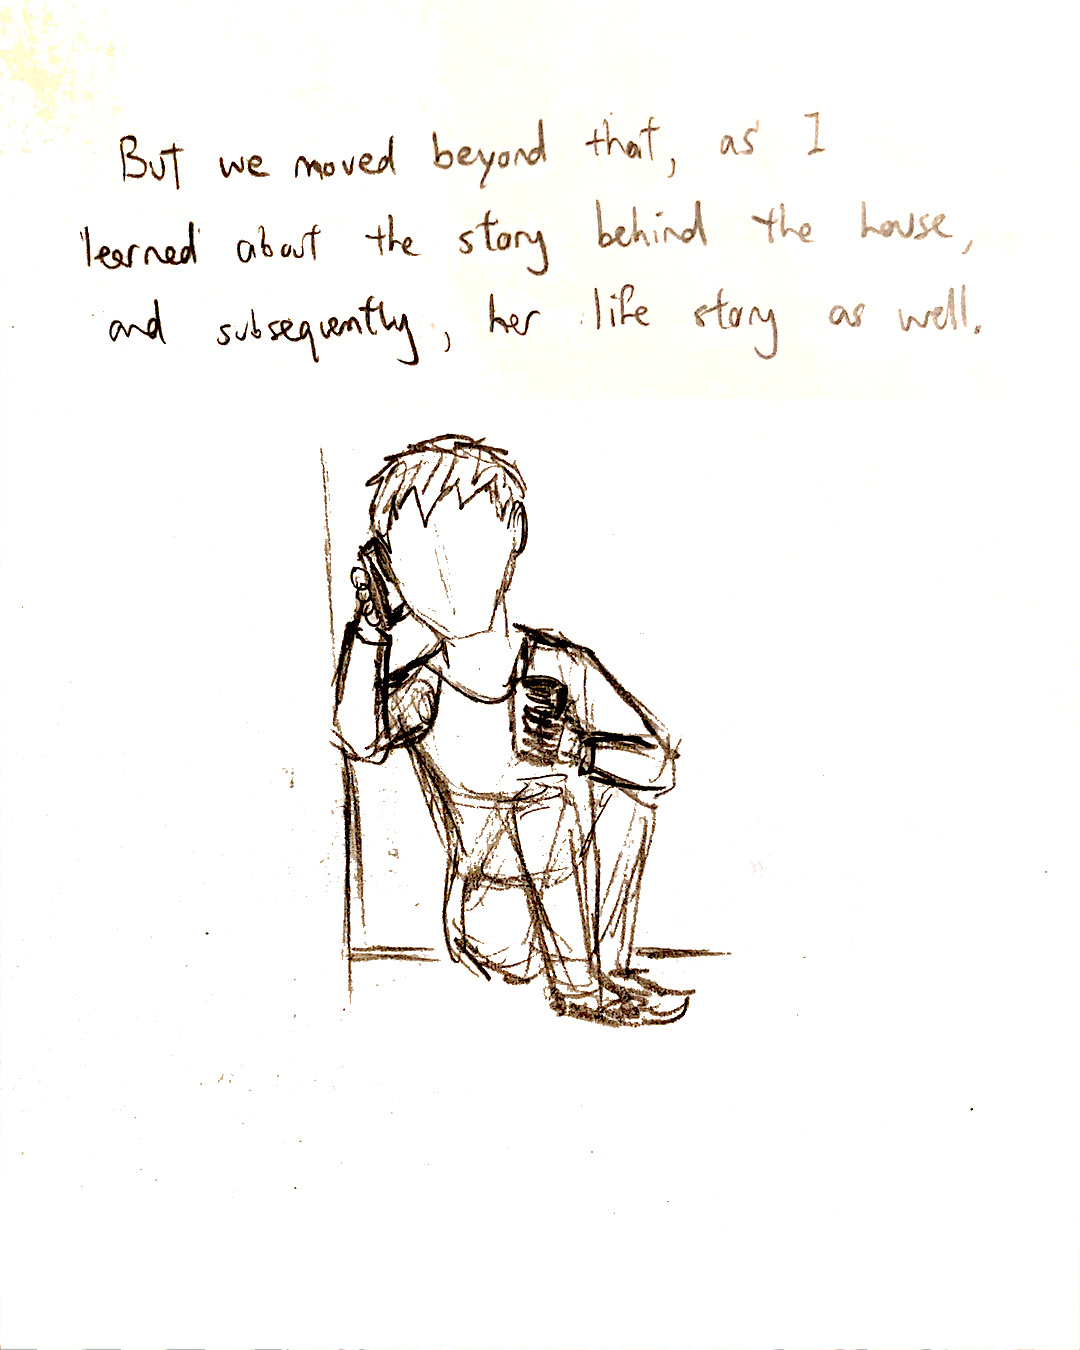 But we moved beyond that, as I
learned about the story behind the house,
and subsequently, her life story as well.